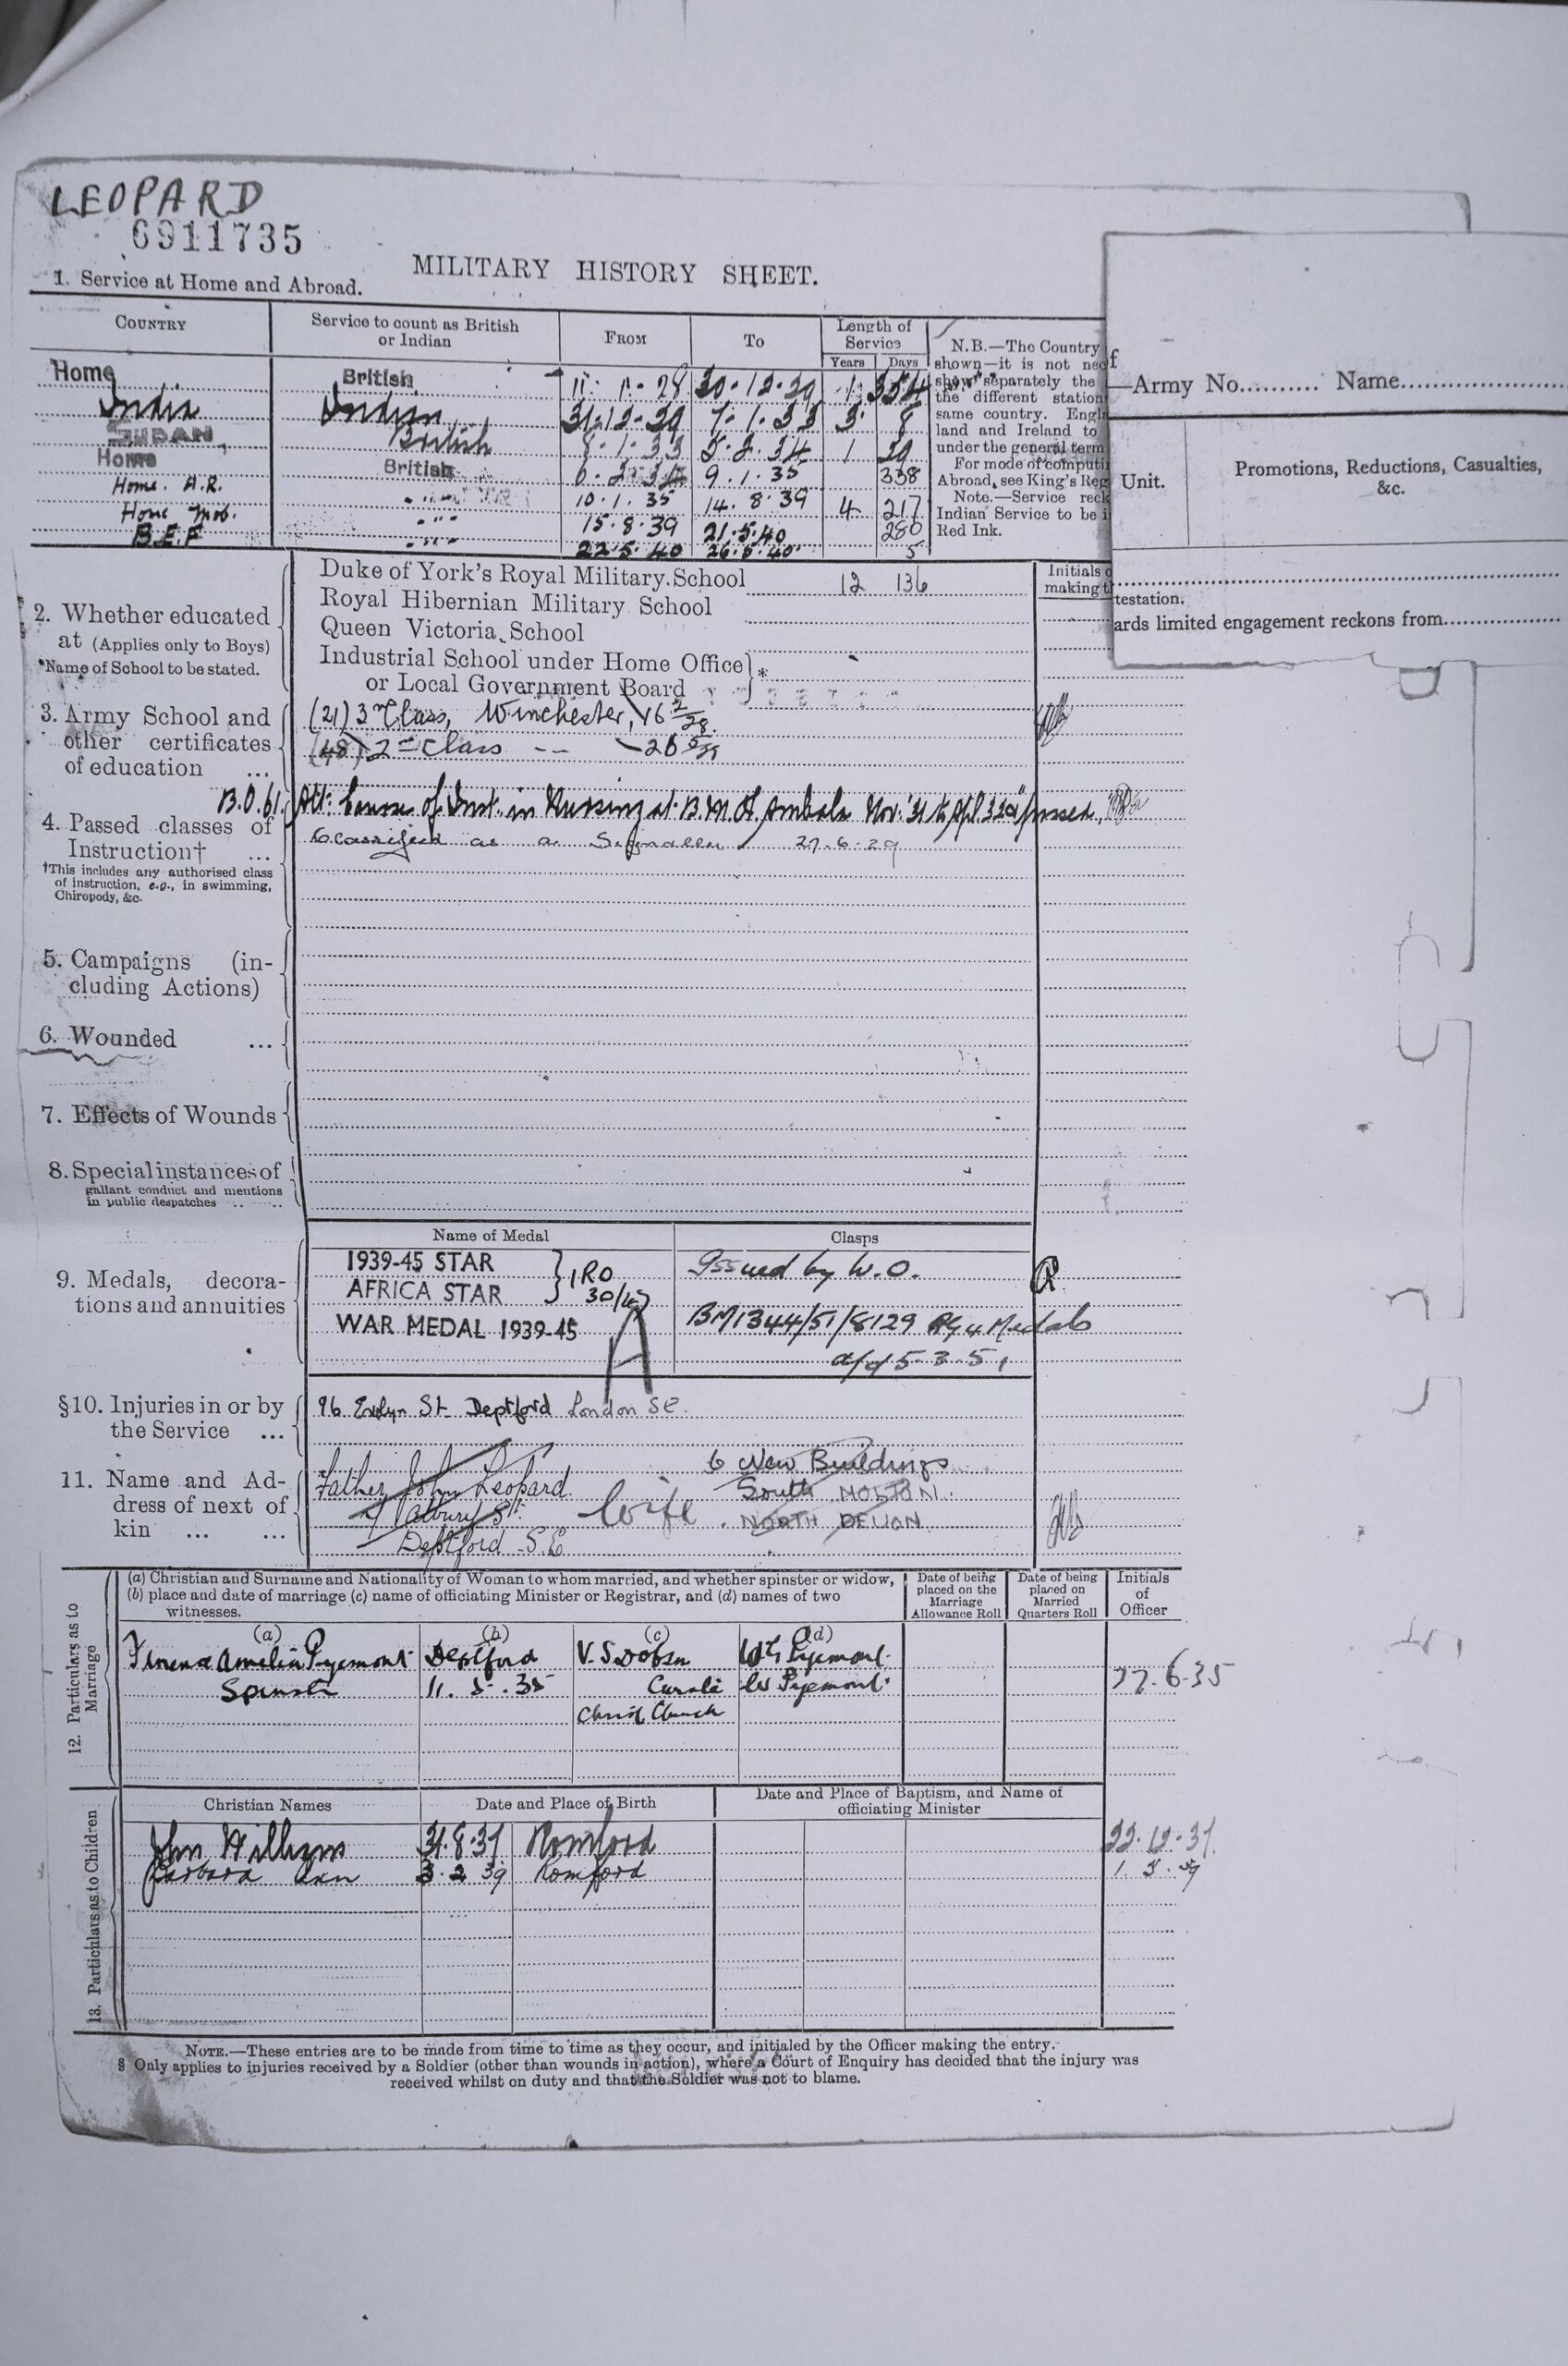 LEOPARD
6911735
MILITARY HISTORY SHEET.
1. Service at Home and Abroad.
COUNTRY
Service to count as British or Indian
FROM
TO
Length of Service
Years Days
Home British 11. 1. 28 30.12.29 1 354
India Indian 31.12.29 7.1.33 3 8
SUDAN British 8.1.33 5.2.34 1 29
Home British 6.2.34 9.1.35 338
Home. A.R. " 10.1.35 14.8.39 4 217
Home Mob. " 15.8.39 21.5.40 280
B.E.F " 22.5.40 26.5.40 5
N.B.—The Country
shown—it is not nec
show separately the
the different station
same country. Engl
land and Ireland to
under the general term
For mode of computi
Abroad, see King's Reg
Note.—Service reck
Indian Service to be i
Red Ink.
f
—Army No.......... Name....................
Unit.
Promotions, Reductions, Casualties,
&c.
testation.
ards limited engagement reckons from..................
Initials o
making t
2. Whether educated
at (Applies only to Boys)
*Name of School to be stated.
Duke of York's Royal Military School 12 136
Royal Hibernian Military School
Queen Victoria School
Industrial School under Home Office
or Local Government Board } *
3. Army School and
other certificates
of education ...
(21) 3rd Class, Winchester, 16 2/28.
(48) 2nd Class -- 26
B.O.61. Att: Course of Inst: in Nursing at B.M.H. Ambala Nov. '31 to Apl. 32 passed.
4. Passed classes of
Instruction† ...
†This includes any authorised class
of instruction, e.g., in swimming,
Chiropody, &c.
Classified as a Signaller 27.6.29
5. Campaigns (in-
cluding Actions)
6. Wounded ...
7. Effects of Wounds
8. Special instances of
gallant conduct and mentions
in public despatches .. ..
9. Medals, decora-
tions and annuities
Name of Medal
Clasps
1939-45 STAR
AFRICA STAR } 1RO
30/47
WAR MEDAL 1939-45
A
Issued by W.O.
BM1344/51/8129 AG4 Medals
d/d 5.3.51
§10. Injuries in or by
the Service ...
96 Evelyn St Deptford London SE.
11. Name and Ad-
dress of next of
kin ... ...
Father John Leopard
St.
Deptford S.E
Wife
6 New Buildings
South MOLTON
NORTH DEVON
12. Particulars as to
Marriage
(a) Christian and Surname and Nationality of Woman to whom married, and whether spinster or widow,
(b) place and date of marriage (c) name of officiating Minister or Registrar, and (d) names of two
witnesses.
Date of being
placed on the
Marriage
Allowance Roll
Date of being
placed on
Married
Quarters Roll
Initials
of
Officer
(a) (b) (c) (d)
Florence Amelia Pyemont Deptford V. S. Dobson Pyemont
Spinster 11. 5. 35 Curate Pyemont
Christ Church
27.6.35
13. Particulars as to Children
Christian Names
Date and Place of Birth
Date and Place of Baptism, and Name of
officiating Minister
John William 31.8.37 Romford 22.12.37
Barbara Ann 3.2.39 Romford 1.3.39
NOTE.—These entries are to be made from time to time as they occur, and initialed by the Officer making the entry.
§ Only applies to injuries received by a Soldier (other than wounds in action), where a Court of Enquiry has decided that the injury was
received whilst on duty and that the Soldier was not to blame.